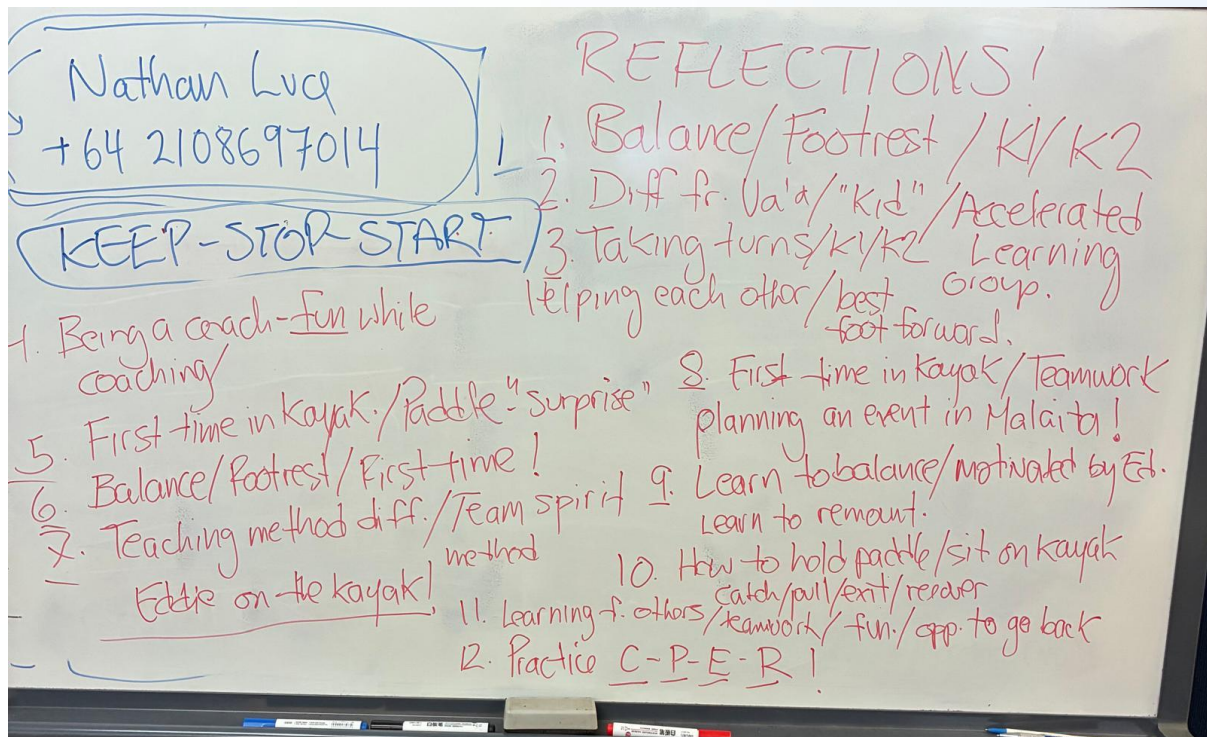 Nathan Luca
+64 2108697014
KEEP-STOP-START
REFLECTIONS!
1. Balance/Footrest/K1/K2
2. Diff fr. Va'a/"Kid"/Accelerated
Learning
Group.
3. Taking turns/K1/K2
Helping each other/best
foot forward.
4. Being a coach-fun while
coaching/
5. First time in Kayak./Paddle-"surprise"
6. Balance/Footrest/First-time!
7. Teaching method diff./Team spirit
method
Eddie on the kayak!
8. First time in Kayak/Teamwork
planning an event in Malaita!
9. Learn to balance/motivated by Ed.
Learn to remount.
10. How to hold paddle/sit on kayak
catch/pull/exit/recover
11. Learning f. others/teamwork/fun/opp. to go back
12. Practice C-P-E-R!